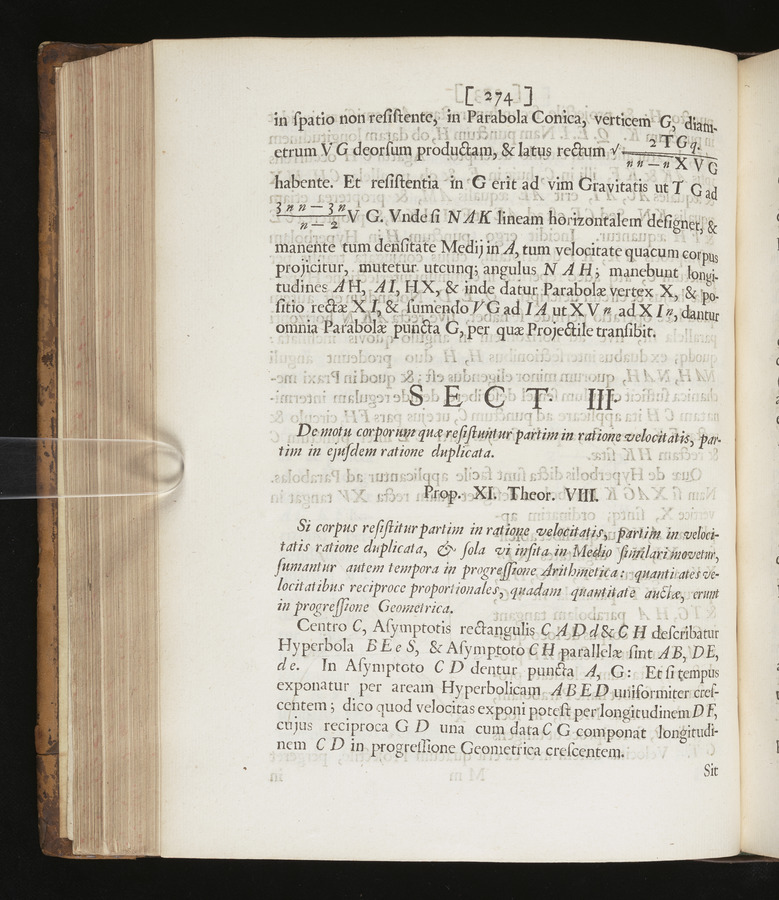 [ 274 ]
in ſpatio non reſiſtente, in Parabola Conica, verticem G, diam-
etrum V G deorſum productam, & latus rectum √ 2 T G q. / nn − n X V G
habente. Et reſiſtentia in G erit ad vim Gravitatis ut T G ad
3 nn − 3 n / n − 2 V G. Vnde ſi N A K lineam horizontalem deſignet, &
manente tum denſitate Medij in A, tum velocitate quacum corpus
projicitur, mutetur utcunq; angulus N A H; manebunt longi-
tudines A H, A I, H X, & inde datur Parabolæ vertex X, & po-
ſitio rectæ X I, & ſumendo V G ad I A ut X V n ad X I n, dantur
omnia Parabolæ puncta G, per quæ Projectile tranſibit.
S E C T. III.
De motu corporum quæ reſiſtuntur partim in ratione velocitatis, par-
tim in ejuſdem ratione duplicata.
Prop. XI. Theor. VIII.
Si corpus reſiſtitur partim in ratione velocitatis, partim in veloci-
tatis ratione duplicata, & ſola vi inſita in Medio ſimilari movetur,
ſumantur autem tempora in progreſſione Arithmetica: quantitates ve-
locitatibus reciproce proportionales, quadam quantitate auctæ, erunt
in progreſſione Geometrica.
Centro C, Aſymptotis rectangulis C A D d & C H deſcribatur
Hyperbola B E e S, & Aſymptoto C H parallelæ ſint A B, D E,
d e. In Aſymptoto C D dentur puncta A, G: Et ſi tempus
exponatur per aream Hyperbolicam A B E D uniformiter creſ-
centem; dico quod velocitas exponi poteſt per longitudinem D F,
cujus reciproca G D una cum data C G componat longitudi-
nem C D in progreſſione Geometrica creſcentem.
Sit